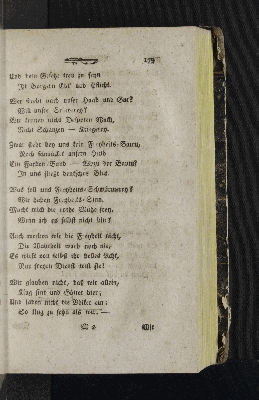 179
Und dein Gesetze treu zu seyn
Ist Bürgern Ehr' und Pflicht.
Wer strebt nach unser Haab und Gut?
Will unser
Wir kennen nicht Despoten Wuth,
Nicht Schatzen — Kriegerey.
Zwar steht bey uns kein Freyheits-Baum,
Noch schmückt unsern Hut
Ein Farben-Band — Wozu der Baum?
In uns fliegt deutsches Blut.
Was soll uns Freyheits-Schwärmerey?
Wir haben Freyheits-Sinn.
Macht mich die rothe Mütze frey,
Wenn ich es selbst nicht bin?
Auch werben wir die Freyheit nicht,
Die Wahrheit wirbt nie;
Es wirkt von selbst ihr helles Licht,
Nur freyen Dienst will sie!
Wir glauben nicht, daß wir allein,
Klug sind und Götter hier;
Und laden nicht die Völker ein:
So klug zu seyn als wir. —
M 2 Wir